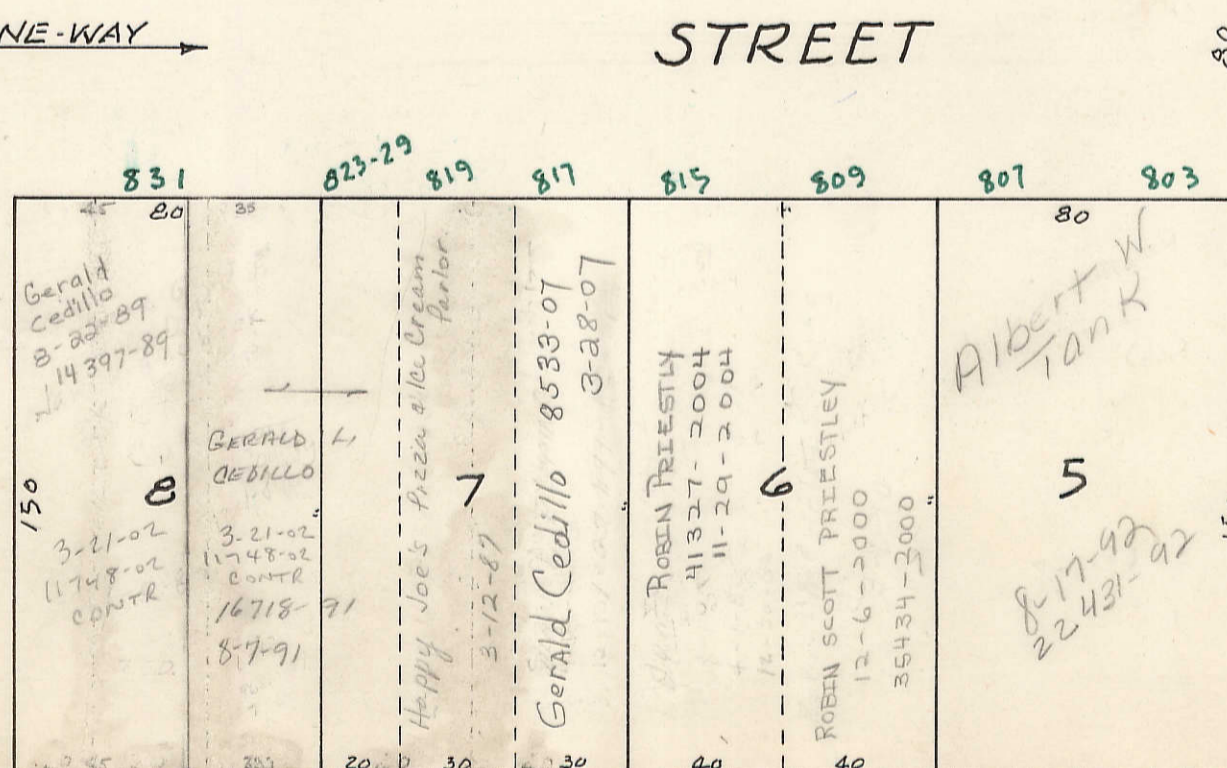 NE-WAY
STREET
831
823-29
819
817
815
809
807
803
45
80
35
80
Gerald
Cedillo
8-22-89
14397-89
150
8
3-21-02
11748-02
CONTR
GERALD L.
CEDILLO
3-21-02
11748-02
CONTR
16718-91
8-7-91
Happy Joe's Pizzia & Ice Cream
Parlor
3-12-87
7
Gerald Cedillo 8533-07
3-28-07
ROBIN PRIESTLY
41327-2004
11-29-2004
6
ROBIN SCOTT PRIESTLEY
12-6-2000
35434-2000
Albert W.
Tank
5
8-17-92
22431-92
45
20
30
30
40
40